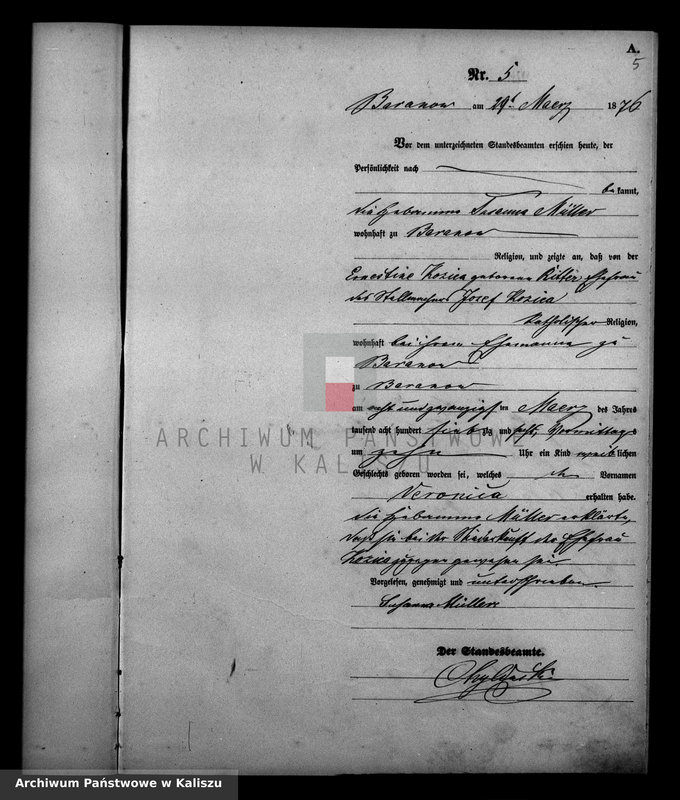 A.
5
Nr. 5
Baranow am 29t Maerz 1876
Vor dem unterzeichneten Standesbeamten erschien heute, der
Persönlichkeit nach
bekannt,
die Hebamme Susanna Müller
wohnhaft zu Baranow
Religion, und zeigte an, daß von der
Ernestine Kozica geborene Ritter, Ehefrau
des Stellmachers Josef Kozica
katholischer Religion,
wohnhaft bei ihrem Ehemanne zu
Baranow
zu Baranow
am acht und zwanzigsten Maerz des Jahres
tausend acht hundert siebzig und sechs, Vormittags
um zehn Uhr ein Kind weiblichen
Geschlechts geboren worden sei, welches Vornamen
Veronica erhalten habe.
die Hebamme Müller erklärte,
daß sie bei der Niederkunft der Ehefrau
Kozica zugegen gewesen sei
Vorgelesen, genehmigt und unterschrieben.
Susanna Müller
Der Standesbeamte.
ARCHIWUM PAŃSTWOWE
W KALISZU
Archiwum Państwowe w Kaliszu